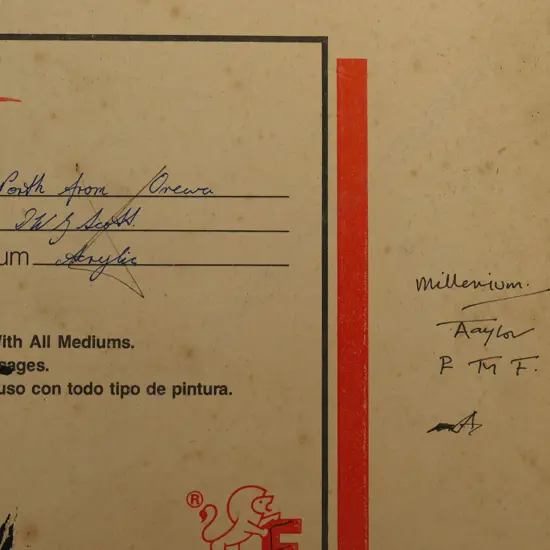 Porth from Orewa
J W G Scott.
um Acrylic
With All Mediums.
sages.
uso con todo tipo de pintura.
®
F
Millenium.
Taaylor
P M F.
A